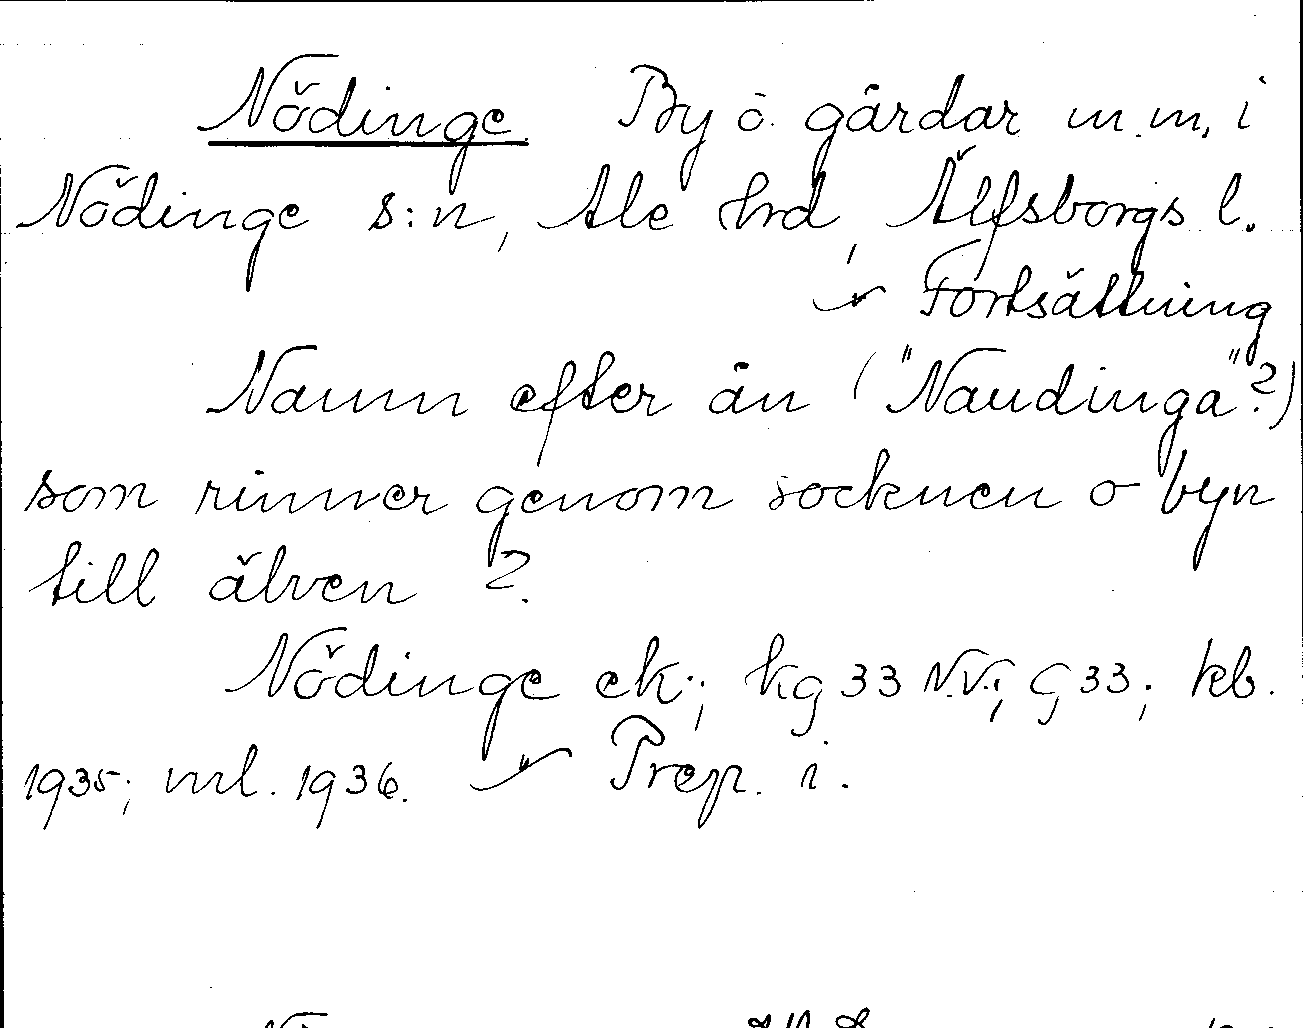 Nödinge. By o. gårdar m.m. i
Nödinge s:n, Ale hrd, Älfsborgs l.
Fortsättning
Namn efter ån ("Naudinga"?)
som rinner genom socknen o byn
till älven?
Nödinge ek.; kg 33 N.V.; G 33; kb.
1935; ml. 1936. Prep. i.